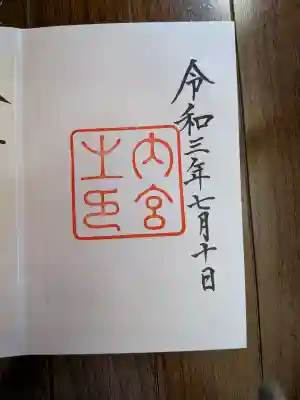 令和三年七月十日
内宮
之印